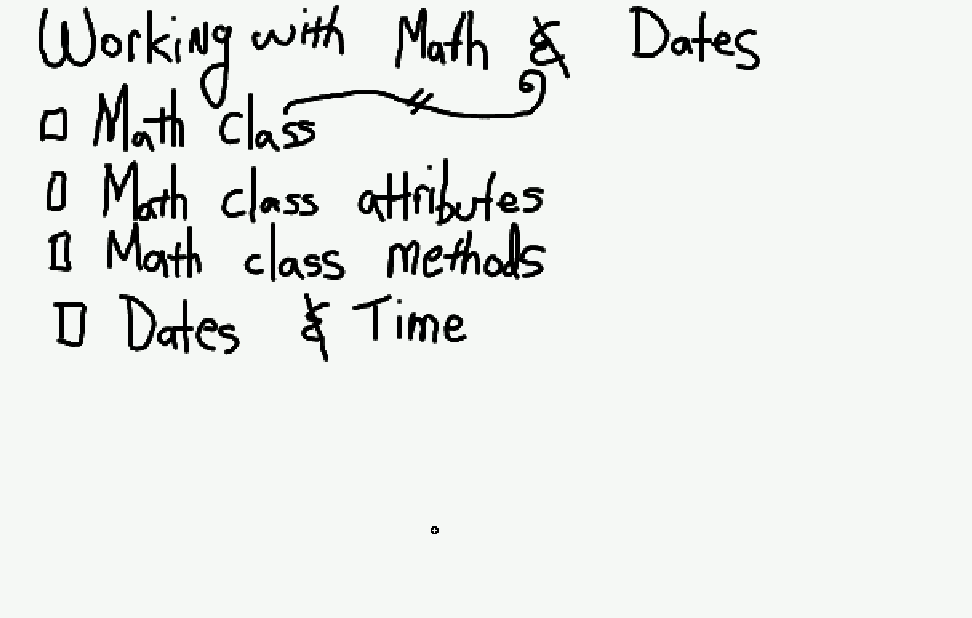 Working with Math & Dates
Math class
Math class attributes
Math class methods
Dates & Time